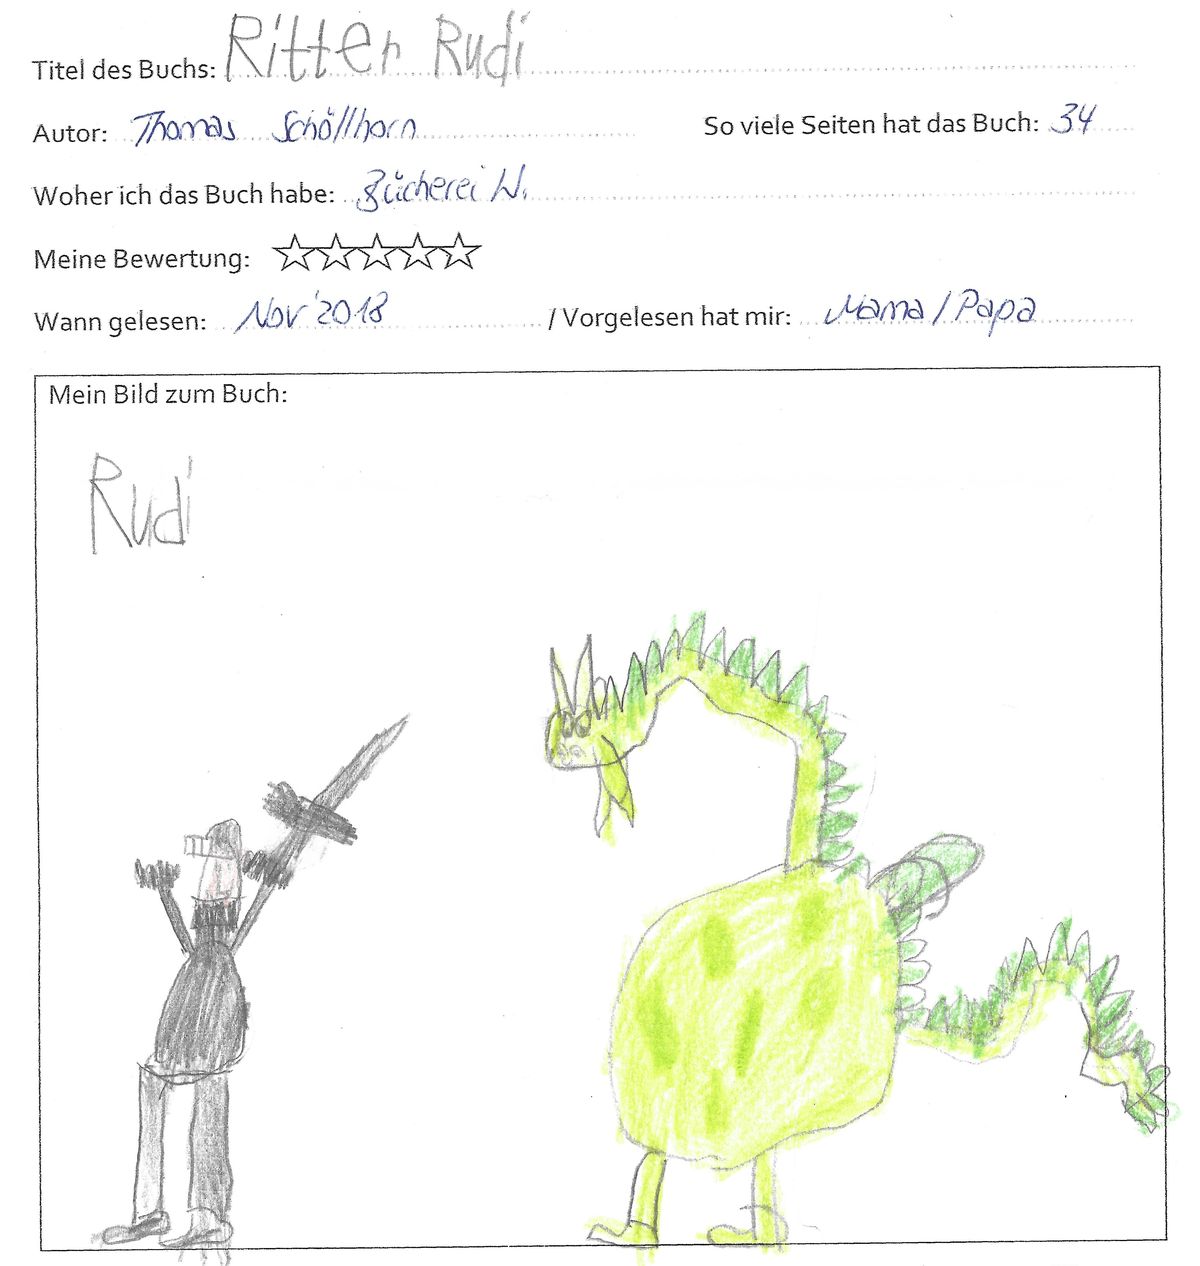 Titel des Buchs: Ritter Rudi
Autor: Thomas Schöllhorn So viele Seiten hat das Buch: 34
Woher ich das Buch habe: Bücherei W.
Meine Bewertung: ☆☆☆☆☆
Wann gelesen: Nov '2018 / Vorgelesen hat mir: Mama / Papa
Mein Bild zum Buch:
Rudi